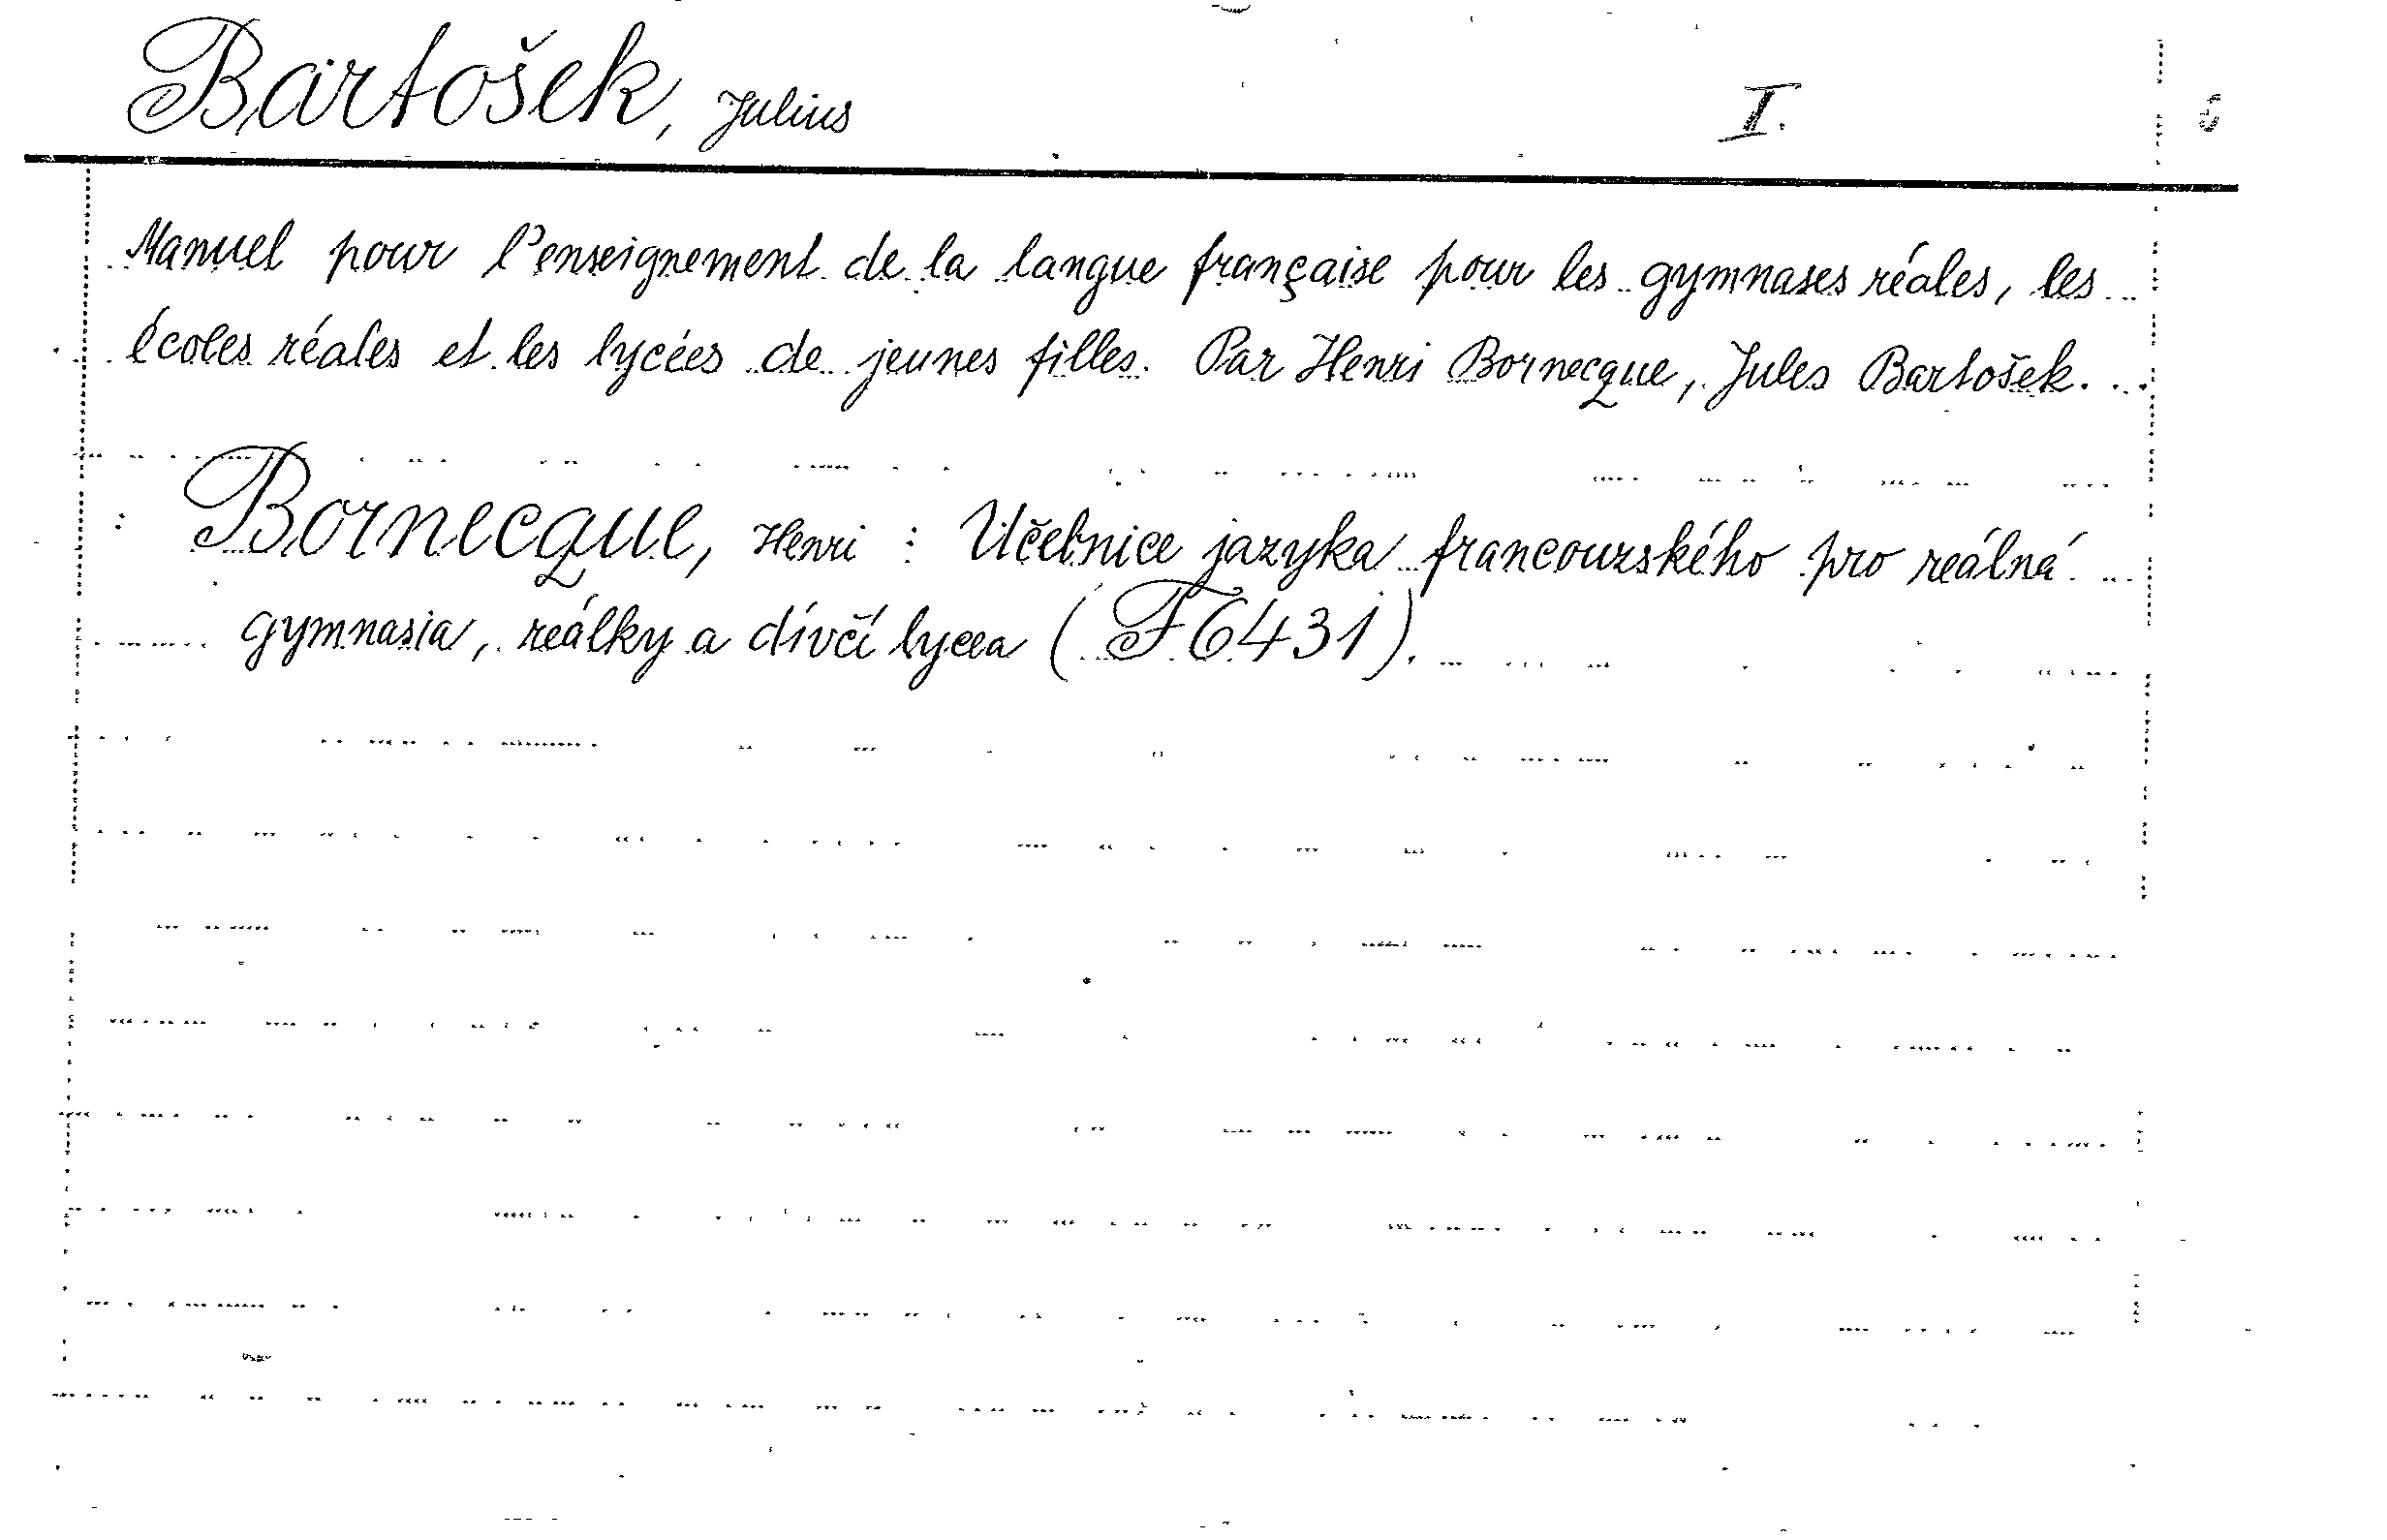 Bartošek, Julius I.
Manuel pour l'enseignement de la langue française pour les gymnases réales, les
écoles réales et les lycées de jeunes filles. Par Henri Bornecque, Jules Bartošek.
: Bornecque, Henri : Učebnice jazyka francouzského pro reálná
gymnasia, reálky a dívčí lycea (F 6431).